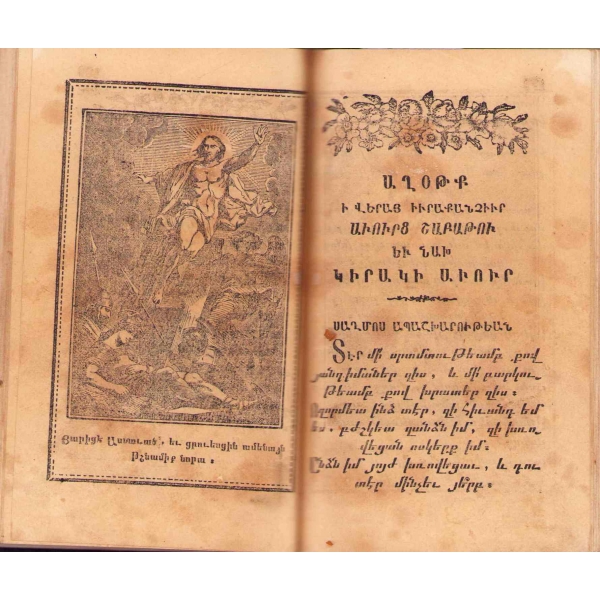 Յարիցէ Աստուած՝, եւ ցրուեսցին ամենայն
թշնամիք նորա ։
ԱՂՕԹՔ
Ի ՎԵՐԱՅ ԻՒՐԱՔԱՆՉԻՒՐ
ԱՒՈՒՐՑ ՇԱԲԱԹՈՒ
ԵՒ ՆԱԽ
ԿԻՐԱԿԻ ԱՒՈՒՐ
ՍԱՂՄՈՍ ԱՊԱՇԽԱՐՈՒԹԵԱՆ
Տէր մի սրտմտութեամբ քով
յանդիմաներ զիս, և մի բարկու-
թեամբ քով խրատեր զիս ։
Ողորմեա ինձ տէր, զի հիւանդ եմ
ես, բժշկեա զանձն իմ, զի խռո-
վեցան ոսկերք իմ ։
Անձն իմ յոյժ խռովեցաւ, և դու
տէր մինչեւ յե՞րբ ։